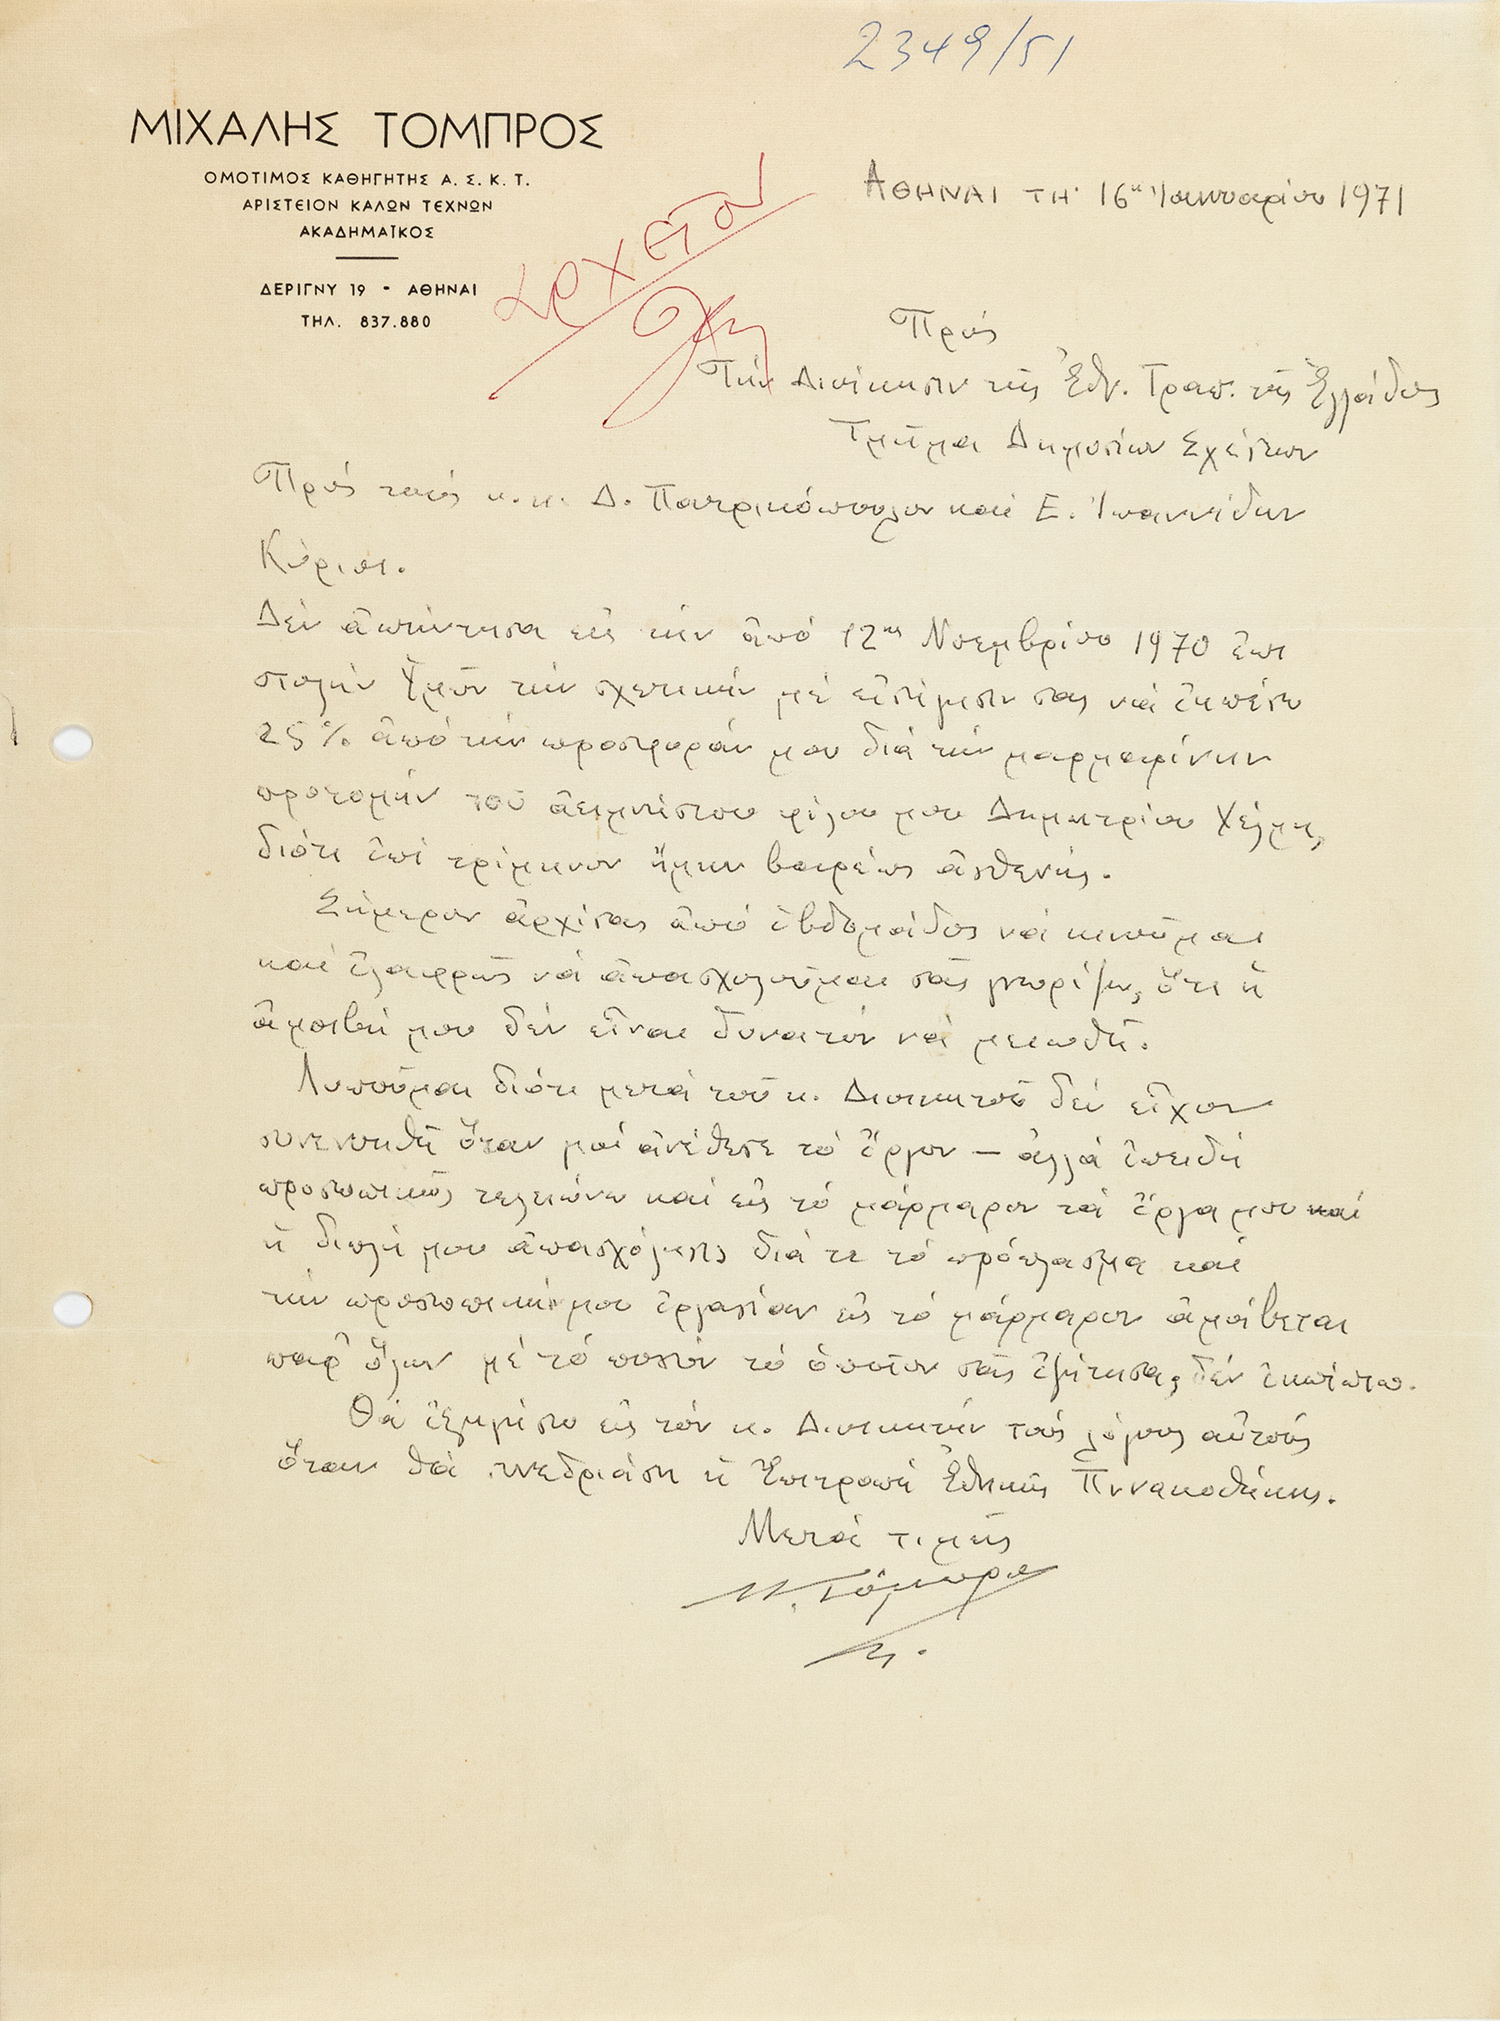 2349/51
ΜΙΧΑΛΗΣ ΤΟΜΠΡΟΣ
ΟΜΟΤΙΜΟΣ ΚΑΘΗΓΗΤΗΣ Α. Σ. Κ. Τ.
ΑΡΙΣΤΕΙΟΝ ΚΑΛΩΝ ΤΕΧΝΩΝ
ΑΚΑΔΗΜΑΪΚΟΣ
ΔΕΡΙΓΝΥ 19 - ΑΘΗΝΑΙ
ΤΗΛ. 837.880
ἀρχεῖον
ΑΘΗΝΑΙ ΤΗ 16 Ἰανουαρίου 1971
Πρός
Τήν Διοίκησιν τῆς Ἐθν. Τραπ. τῆς Ἑλλάδος
Τμῆμα Δημοσίων Σχέσεων
Πρός τούς κ.κ. Δ. Πατρικόπουλον καί Ε. Ἰωαννίδην
Κύριοι.
Δέν ἀπήντησα εἰς τήν ἀπό 12ης Νοεμβρίου 1970 ἐπι
στολήν Ὑμῶν τήν σχετικήν μέ εἰσήγησίν σας νά ἐκπέσω
25% ἀπό τήν προσφοράν μου διά τήν μαρμαρίνην
προτομήν τοῦ ἀειμνήστου φίλου μου Δημητρίου Χέλμη,
διότι ἐπί τρίμηνον ἤμην βαρέως ἀσθενής.
Σήμερον ἀρχίσας ἀπό ἑβδομάδος νά κινοῦμαι
καί ἐλαφρῶς νά ἀπασχολοῦμαι σᾶς γνωρίζω, ὅτι ἡ
ἀμοιβή μου δέν εἶναι δυνατόν νά μειωθῆ.
Λυποῦμαι διότι μετά τοῦ κ. Διοικητοῦ δέν εἶχον
συνεννοηθῆ ὅταν μοί ἀνέθεσε τό ἔργον – ἀλλά ἐπειδή
προσωπικῶς τελειώνω καί εἰς τό μάρμαρον τά ἔργα μου καί
ἡ διπλή μου ἀπασχόλησις διά τε τό πρόπλασμα καί
τήν προσωπική μου ἐργασίαν εἰς τό μάρμαρον ἀμοίβεται
παρ' ὅλων μέ τό ποσόν τό ὁποῖον σᾶς ἐζήτησα, δέν ἐκπίπτω.
Θά ἐξηγήσω εἰς τόν κ. Διοικητήν τούς λόγους αὐτούς
ὅταν θά συνεδριάση ἡ Ἐπιτροπή Ἐθνικῆς Πινακοθήκης.
Μετά τιμῆς
Μ. Τόμπρος